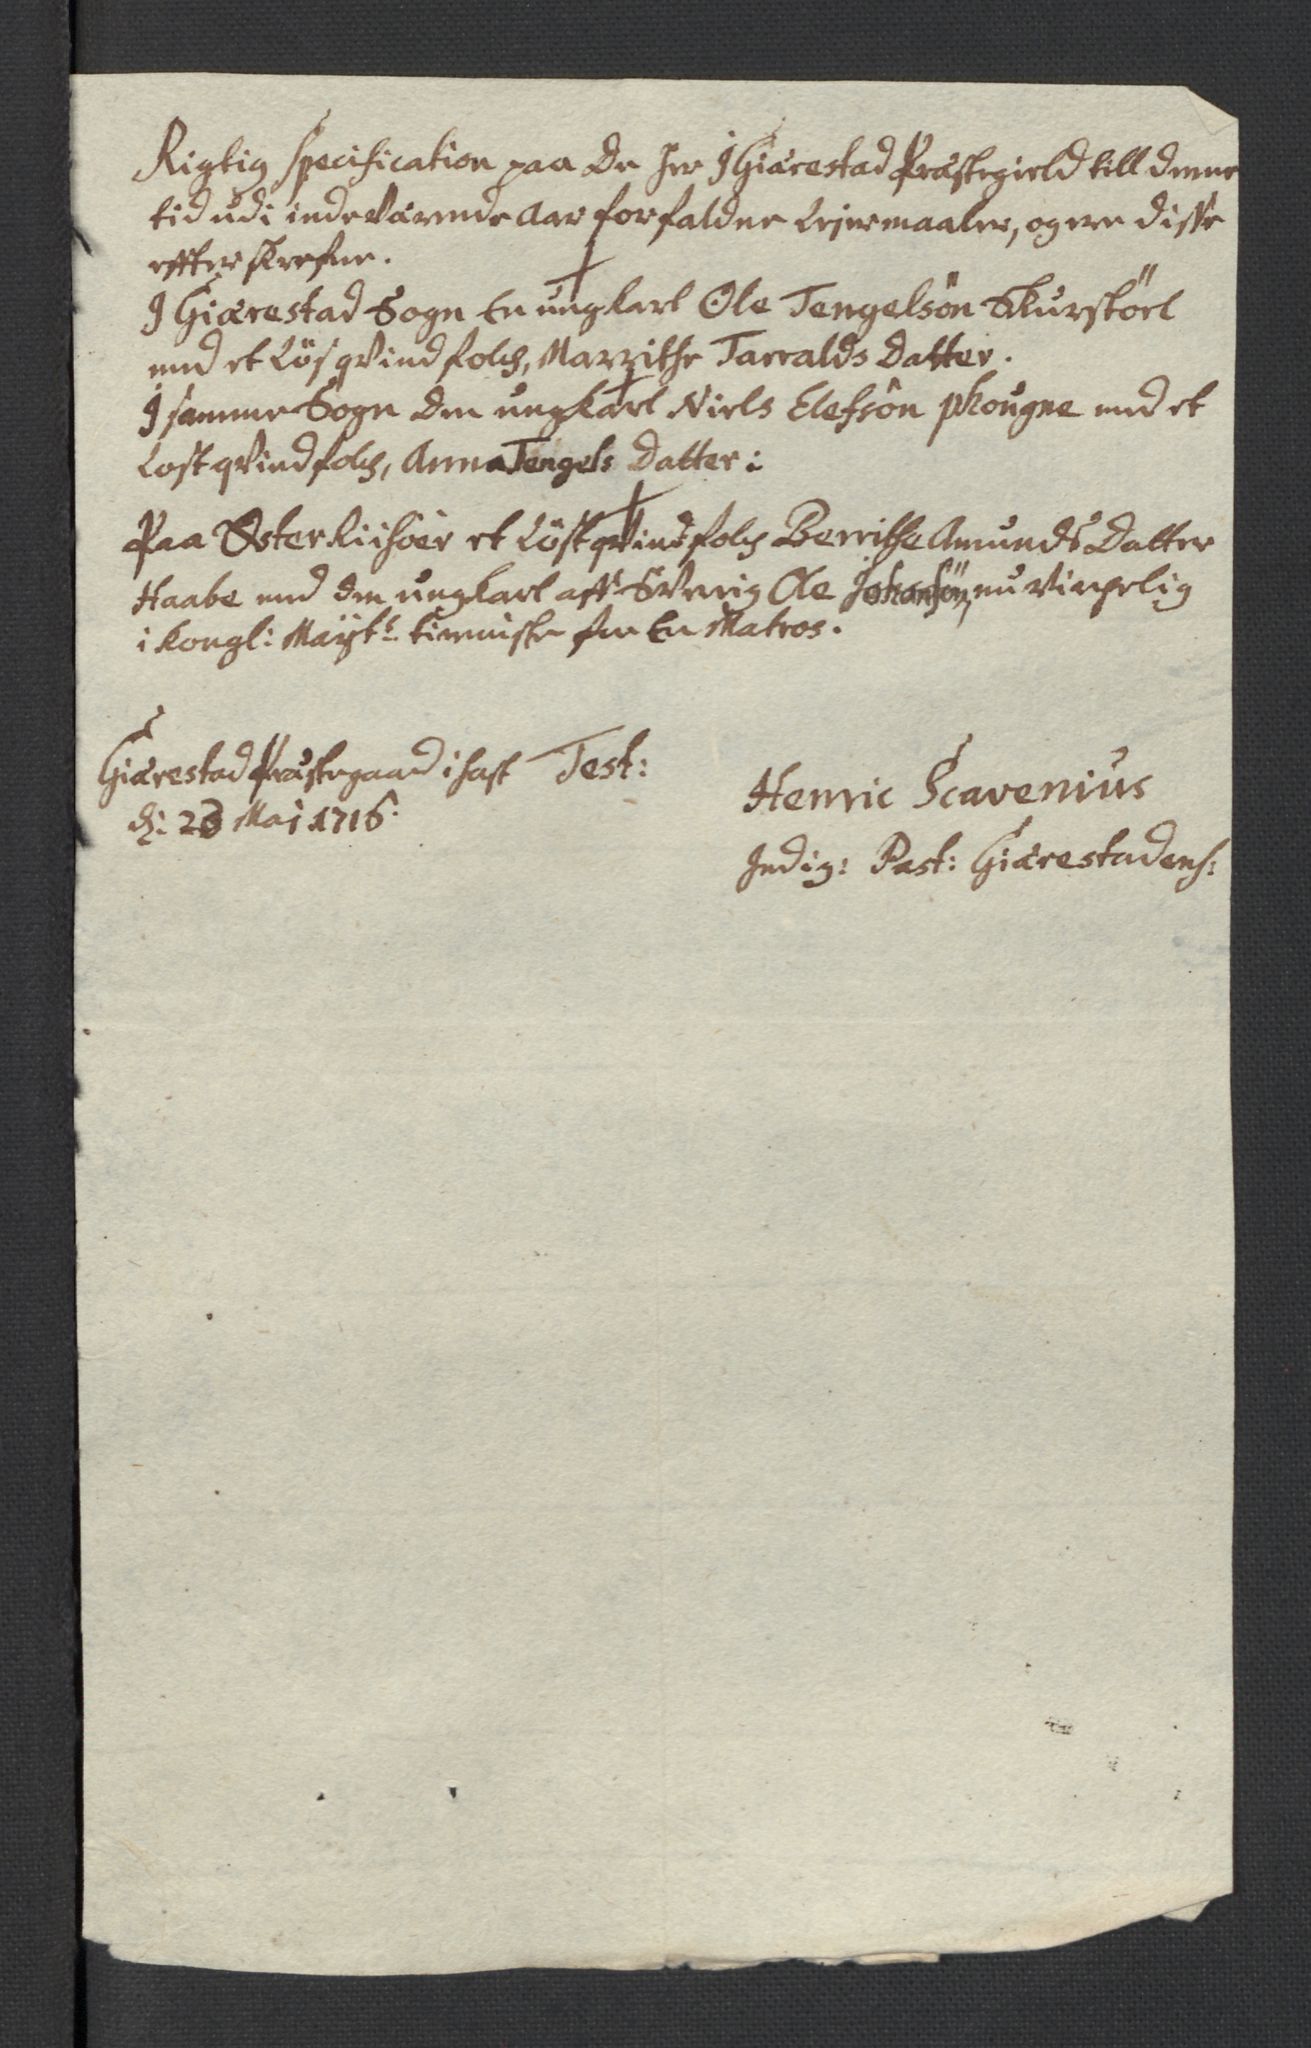 Rigtig Specification paa De her J Giærestad Præstegield till denne
tid udi indeværende Aar forfaldne Leiermaaler, og ere disse
effterskrefne.
J Giærestad Sogn En ungkarl Ole Tengelsön Skurskört
med et Lös qvindfolch, Marrithe Tarralds Datter.
J samme Sogn Den ungkarl Niels Elefsön med et
Löst qvindfolch, Anna Tengels Datter:
Paa Øster Riisöer et Löst qvindfolch Berrithe Amunds Datter
Haabe med den ungkarl aff Sverig Ole Johansön, nu virchelig
i Kongl: Mayts: tienniste for En Matros.
Giærestad Præstegaard i hast Test:
d: 28 Maj 1716.
Henric Scavenius
Indig: Past: Giærestadens: